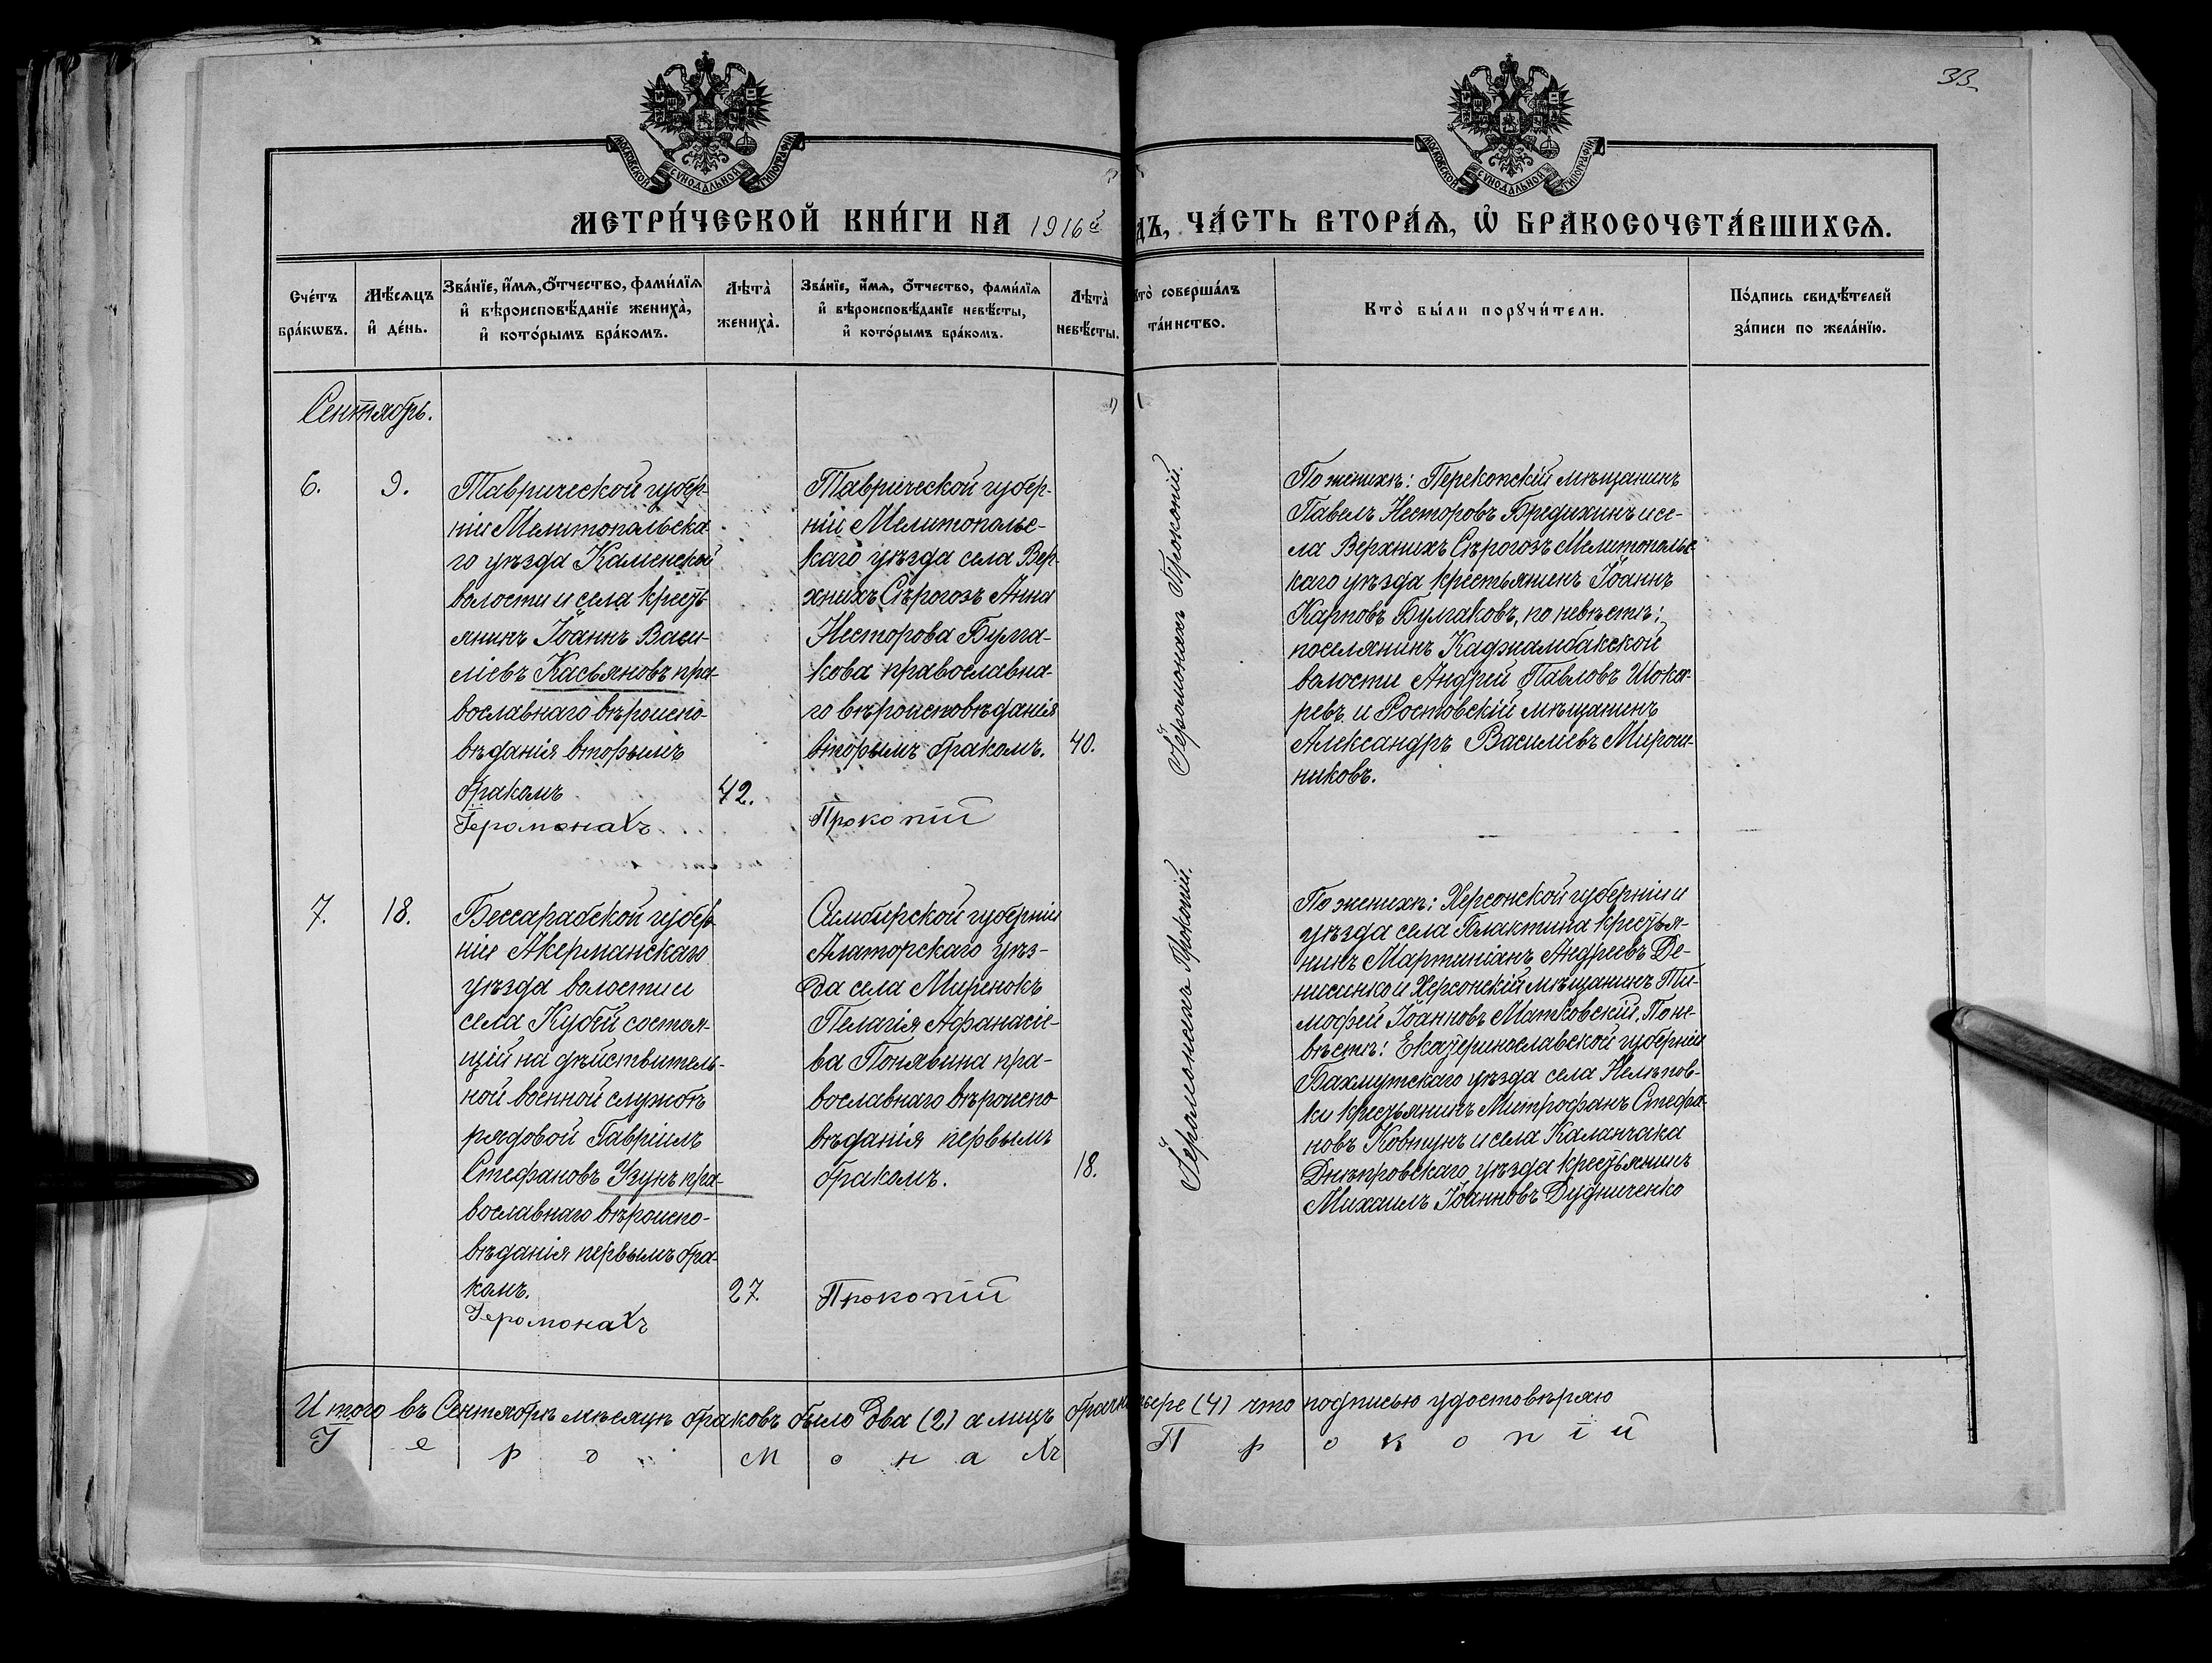 33
МОСКОВСКОЙ СѴНОДАЛЬНОЙ ТИПОГРАФІИ
МОСКОВСКОЙ СѴНОДАЛЬНОЙ ТИПОГРАФІИ
МЕТРИ́ЧЕСКОЙ КНИ́ГИ НА 1916й
ДЪ, ЧА́СТЬ ВТОРА́Ѧ, Ѡ҆ БРАКОСОЧЕТА́ВШИХСѦ.
Сче́тъ бра́кѡвъ.
Мѣ́сѧцъ и҆ де́нь.
Зва́нїе, и҆́мѧ, ѻ҆́тчество, фами́лїѧ и҆ вѣроисповѣ́данїе жениха̀, и҆ кото́рымъ бра́комъ.
Лѣта̀ жениха̀.
Зва́нїе, и҆́мѧ, ѻ҆́тчество, фами́лїѧ и҆ вѣроисповѣ́данїе невѣ́сты, и҆ кото́рымъ бра́комъ.
Лѣта̀ невѣ́сты.
кто̀ соверша́лъ та́инство.
Кто̀ бы́ли порꙋчи́тели.
По́дпись свидѣ́телей за́писи по жела́нїю.
Сентябрь.
6.
9.
Таврической губер-
ніи Мелитопольска
го уѣзда Каменской
волости и села кресть
янинъ Іоаннъ Васи-
ліевъ Касьяновъ пра-
вославнаго вѣроиспо-
вѣданія вторымъ
бракомъ
Іеромонахъ
42.
Таврической губер-
ніи Мелитопольс-
каго уѣзда села Вер-
хнихъ Сѣрогозъ Анна
Несторова Булга-
кова православна-
го вѣроисповѣданія
вторымъ бракомъ.
Прокопій
40.
Іеромонахъ Прокопій.
По женихѣ: Перекопскій мѣщанинъ
Павелъ Несторовъ Бредихинъ и се-
ла Верхнихъ Сѣрогозъ Мелитопольс
каго уѣзда крестьянинъ Іоаннъ
Карповъ Булгаковъ, по невѣстѣ:
поселянинъ Каджамбакской
волости Андрей Павловъ Шока-
ревъ и Ростовскій мѣщанинъ
Александръ Василіевъ Мирош-
никовъ.
7.
18.
Бессарабской губер
ніи Акерманскаго
уѣзда волости и
села Кубей состоя-
щій на дѣйствитель-
ной военной службѣ
рядовой Гавріилъ
Стефановъ Узунъ пра-
вославнаго вѣроиспо-
вѣданія первымъ бра-
комъ.
Іеромонахъ
27.
Симбирской губерніи
Алаторскаго уѣз-
да села Миренокъ
Пелагія Афанасіе-
ва Понявина пра-
вославнаго вѣроиспо
вѣданія первымъ
бракомъ.
Прокопій
18.
Іеромонахъ Прокопій.
По женихѣ: Херсонской губерніи и
уѣзда села Блактина крестья-
нинъ Мартиніанъ Андреевъ Де-
нисинко и Херсонскій мѣщанинъ Ти-
мофей Іоанновъ Матковскій. По не-
вѣстѣ: Екатеринославской губерніи
Бахмутскаго уѣзда села Нелѣпов-
ки крестьянинъ Митрофанъ Стефа-
новъ Ковтунъ и села Каланчака
Днѣпровскаго уѣзда крестьянинъ
Михаилъ Іоанновъ Дудниченко
Итого въ Сентябрѣ мѣсяцѣ браковъ было Два (2) а лицъ (4) что подписью удостовѣряю
Іеромонахъ Прокопій